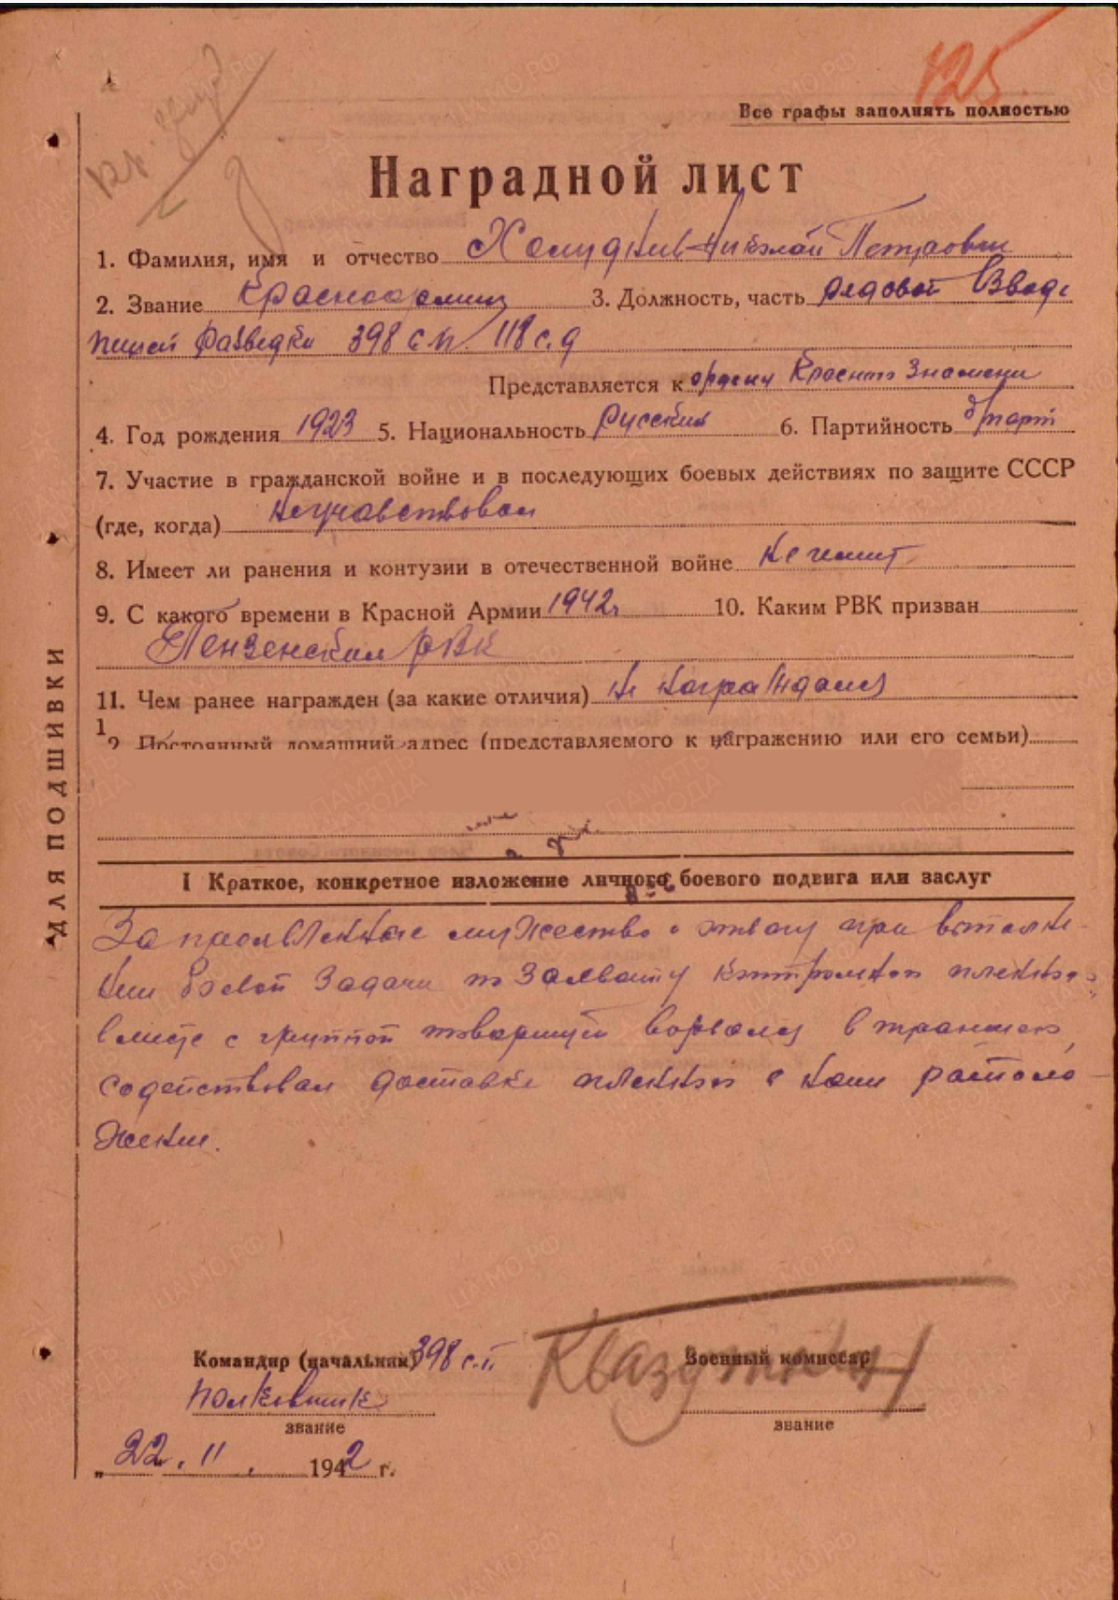 125
Все графы заполнять полностью
Наградной лист
1. Фамилия, имя и отчество Николай Петрович
2. Звание Красноармеец 3. Должность, часть рядовой Взвода
пешей разведки 398 с.п. 118 с.д
Представляется к ордену Красного Знамени
4. Год рождения 1923 5. Национальность Русский 6. Партийность б/парт
7. Участие в гражданской войне и в последующих боевых действиях по защите СССР
(где, когда) не участвовал
8. Имеет ли ранения и контузии в отечественной войне не имеет
9. С какого времени в Красной Армии 1942г 10. Каким РВК призван
Пензенским РВК
11. Чем ранее награжден (за какие отличия) не награждался
12. Постоянный домашний адрес (представляемого к награждению или его семьи)
I Краткое, конкретное изложение личного боевого подвига или заслуг
За проявленное мужество и отвагу при выполне-
нии боевой задачи по захвату контрольного пленного
вместе с группой товарищей ворвался в траншею,
содействовал доставке пленного в наше располо-
жение.
Командир (начальник) 398 с.п. Военный комиссар
полковник
звание звание
„22. 11. 1942 г.
ДЛЯ ПОДШИВКИ
ПАМЯТЬ НАРОДА
ЦАМО.РФ